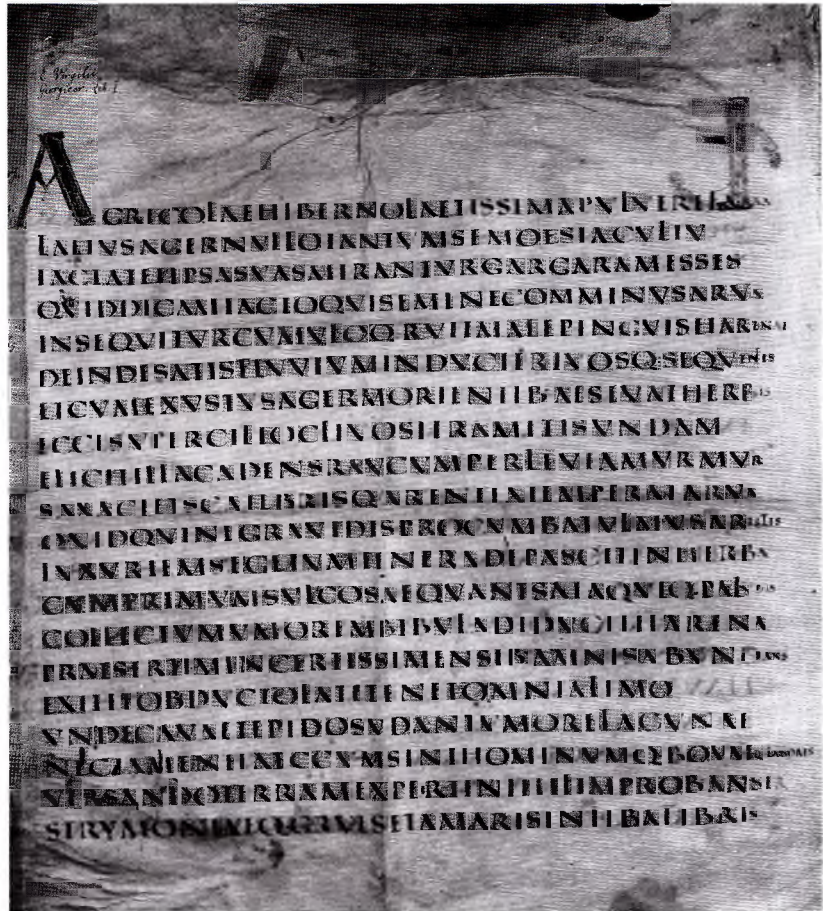 Virgilii
Georgicor. Lib. I
AGRICOLAEHIBERNOLAETISSIMAPVLVEREFARRA
LAETVSAGERNVLLOTANTVMSEMOESIACVLTV
IACTATETIPSASVASMIRANTVRGARGARAMESSES
QVIDDICAMIACTOQVISEMINECOMMINVSARVA
INSEQVITVRCVMVLOSQ·RVITMALEPINGVISHARENAE
DEINDESATISFLVVIVMINDVCITRIVOSQ·SEQVENTIS
ETCVMEXVSTVSAGERMORIENTIBAESTVATHERBIS
ECCESVPERCILIOCLIVOSITRAMITISVNDAM
ELICITILLACADENSRAVCVMPERLEVIAMVRMVR
SAXACIETSCATEBRISQ·ARENTIATEMPERATARVA
QVIDQVINEGRAVIDISPROCVMBATCVLMVSARISTIS
LVXVRIEMSEGETVMTENERADEPASCITINHERBA
CVMPRIMVMSVLCOSAEQVANTSATAQVIQ·PALVDIS
COLLECTVMVMOREMBIBVLADEDVCITHARENA
PRAESERTIMINCERTISSIMENSIBAMNISABVNDANS
EXITETOBDVCTOLATETENETOMNIALIMO
VNDECAVAETEPIDOSVDANTVMORELACVNAE
NECTAMENHAECCVMSINTHOMINVMQ·BOVMQ·LABORES
VERSANDOTERRAMEXPERTINIHILIMPROBANSER
STRYMONIAEQ·GRVESETAMARISINTIBAFIBRIS